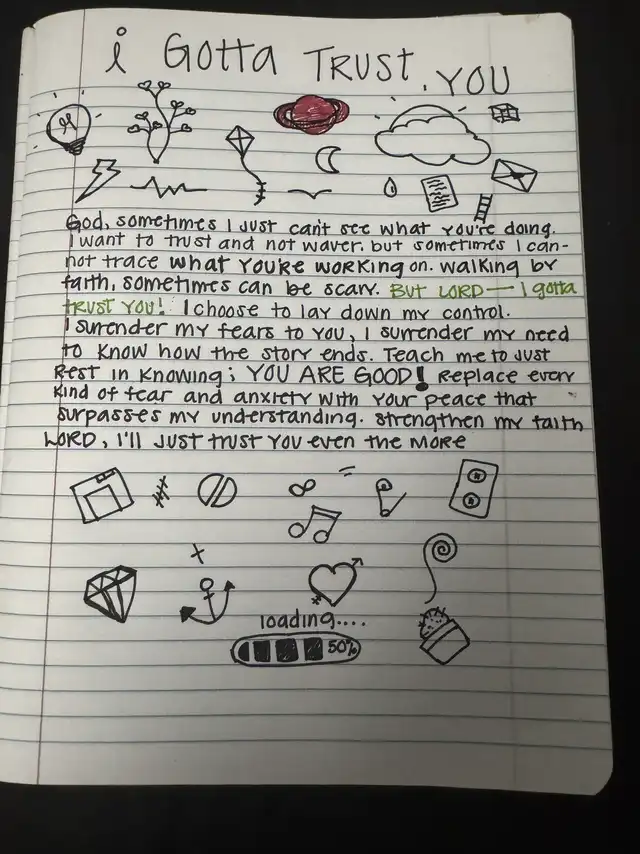 i GOTTA TRUST YOU
God, sometimes I just can't see what you're doing.
I want to trust and not waver. but sometimes I can-
not trace what you're working on. walking by
faith, sometimes can be scary. BUT LORD — I gotta
trust you! I choose to lay down my control.
I surrender my fears to you, I surrender my need
to know how the story ends. Teach me to just
Rest in knowing; YOU ARE GOOD! Replace every
kind of fear and anxiety with your peace that
surpasses my understanding. strengthen my faith
LORD, I'll just trust you even the more
loading....
50%